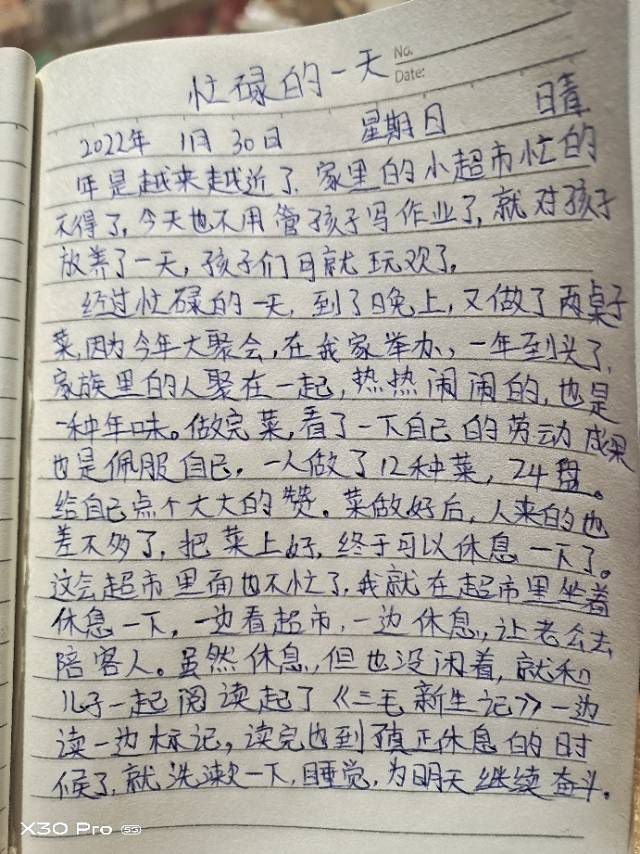 No.
忙碌的一天
Date:
2022年 1月 30日 星期日 晴
年是越来越近了，家里的小超市忙的
不得了，今天也不用管孩子写作业了，就对孩子
放养了一天，孩子们可就玩欢了。
经过忙碌的一天，到了晚上，又做了两桌子
菜，因为今年大聚会，在我家举办，一年到头了，
家族里的人聚在一起，热热闹闹的，也是
一种年味。做完菜，看了一下自己的劳动成果
也是佩服自己，一人做了12种菜，24盘。
给自己点个大大的赞。菜做好后，人来的也
差不多了，把菜上好，终于可以休息一下了。
这会超市里面也不忙了，我就在超市里坐着
休息一下，一边看超市，一边休息，让老公去
陪客人。虽然休息，但也没闲着，就和
儿子一起阅读起了《三毛新生记》一边
读一边标记，读完也到真正休息的时
候了，就洗漱一下，睡觉，为明天继续奋斗。
X30 Pro 5G